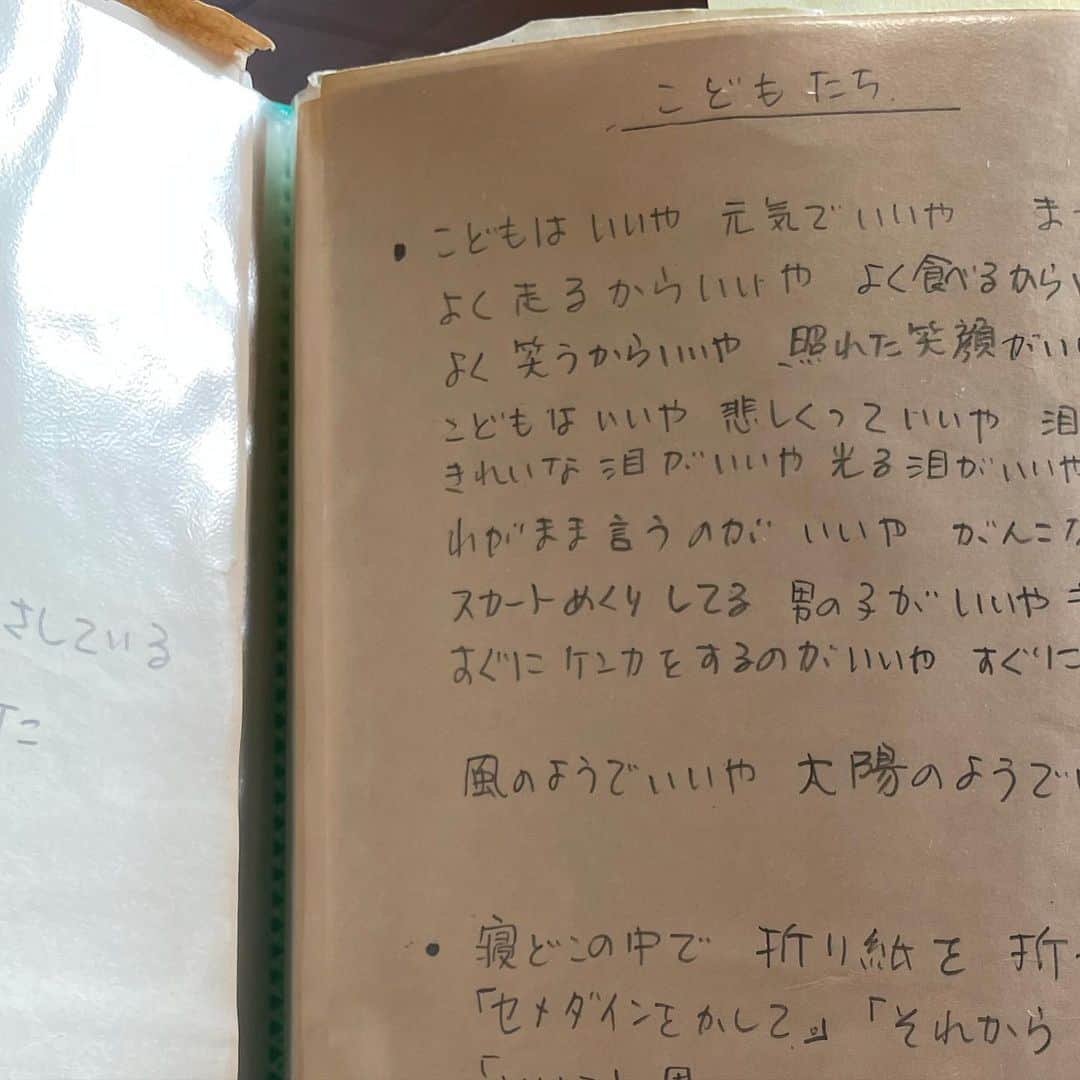 さしている
た
こどもたち
こどもは いいや 元気で いいや ま
よく 走るからいいや よく食べるから
よく 笑うからいいや 照れた笑顔がいい
こどもは いいや 悲しくって いいや 泪
きれいな 泪がいいや 光る泪がいいや
わがまま言うのが いいや がんこな
スカートめくりしてる 男の子が いいや
すぐに ケンカをするのがいいや すぐに
風のようでいいや 太陽のようで
寝どこの中で 折り紙を 折
「セメダインをかして。」「それから